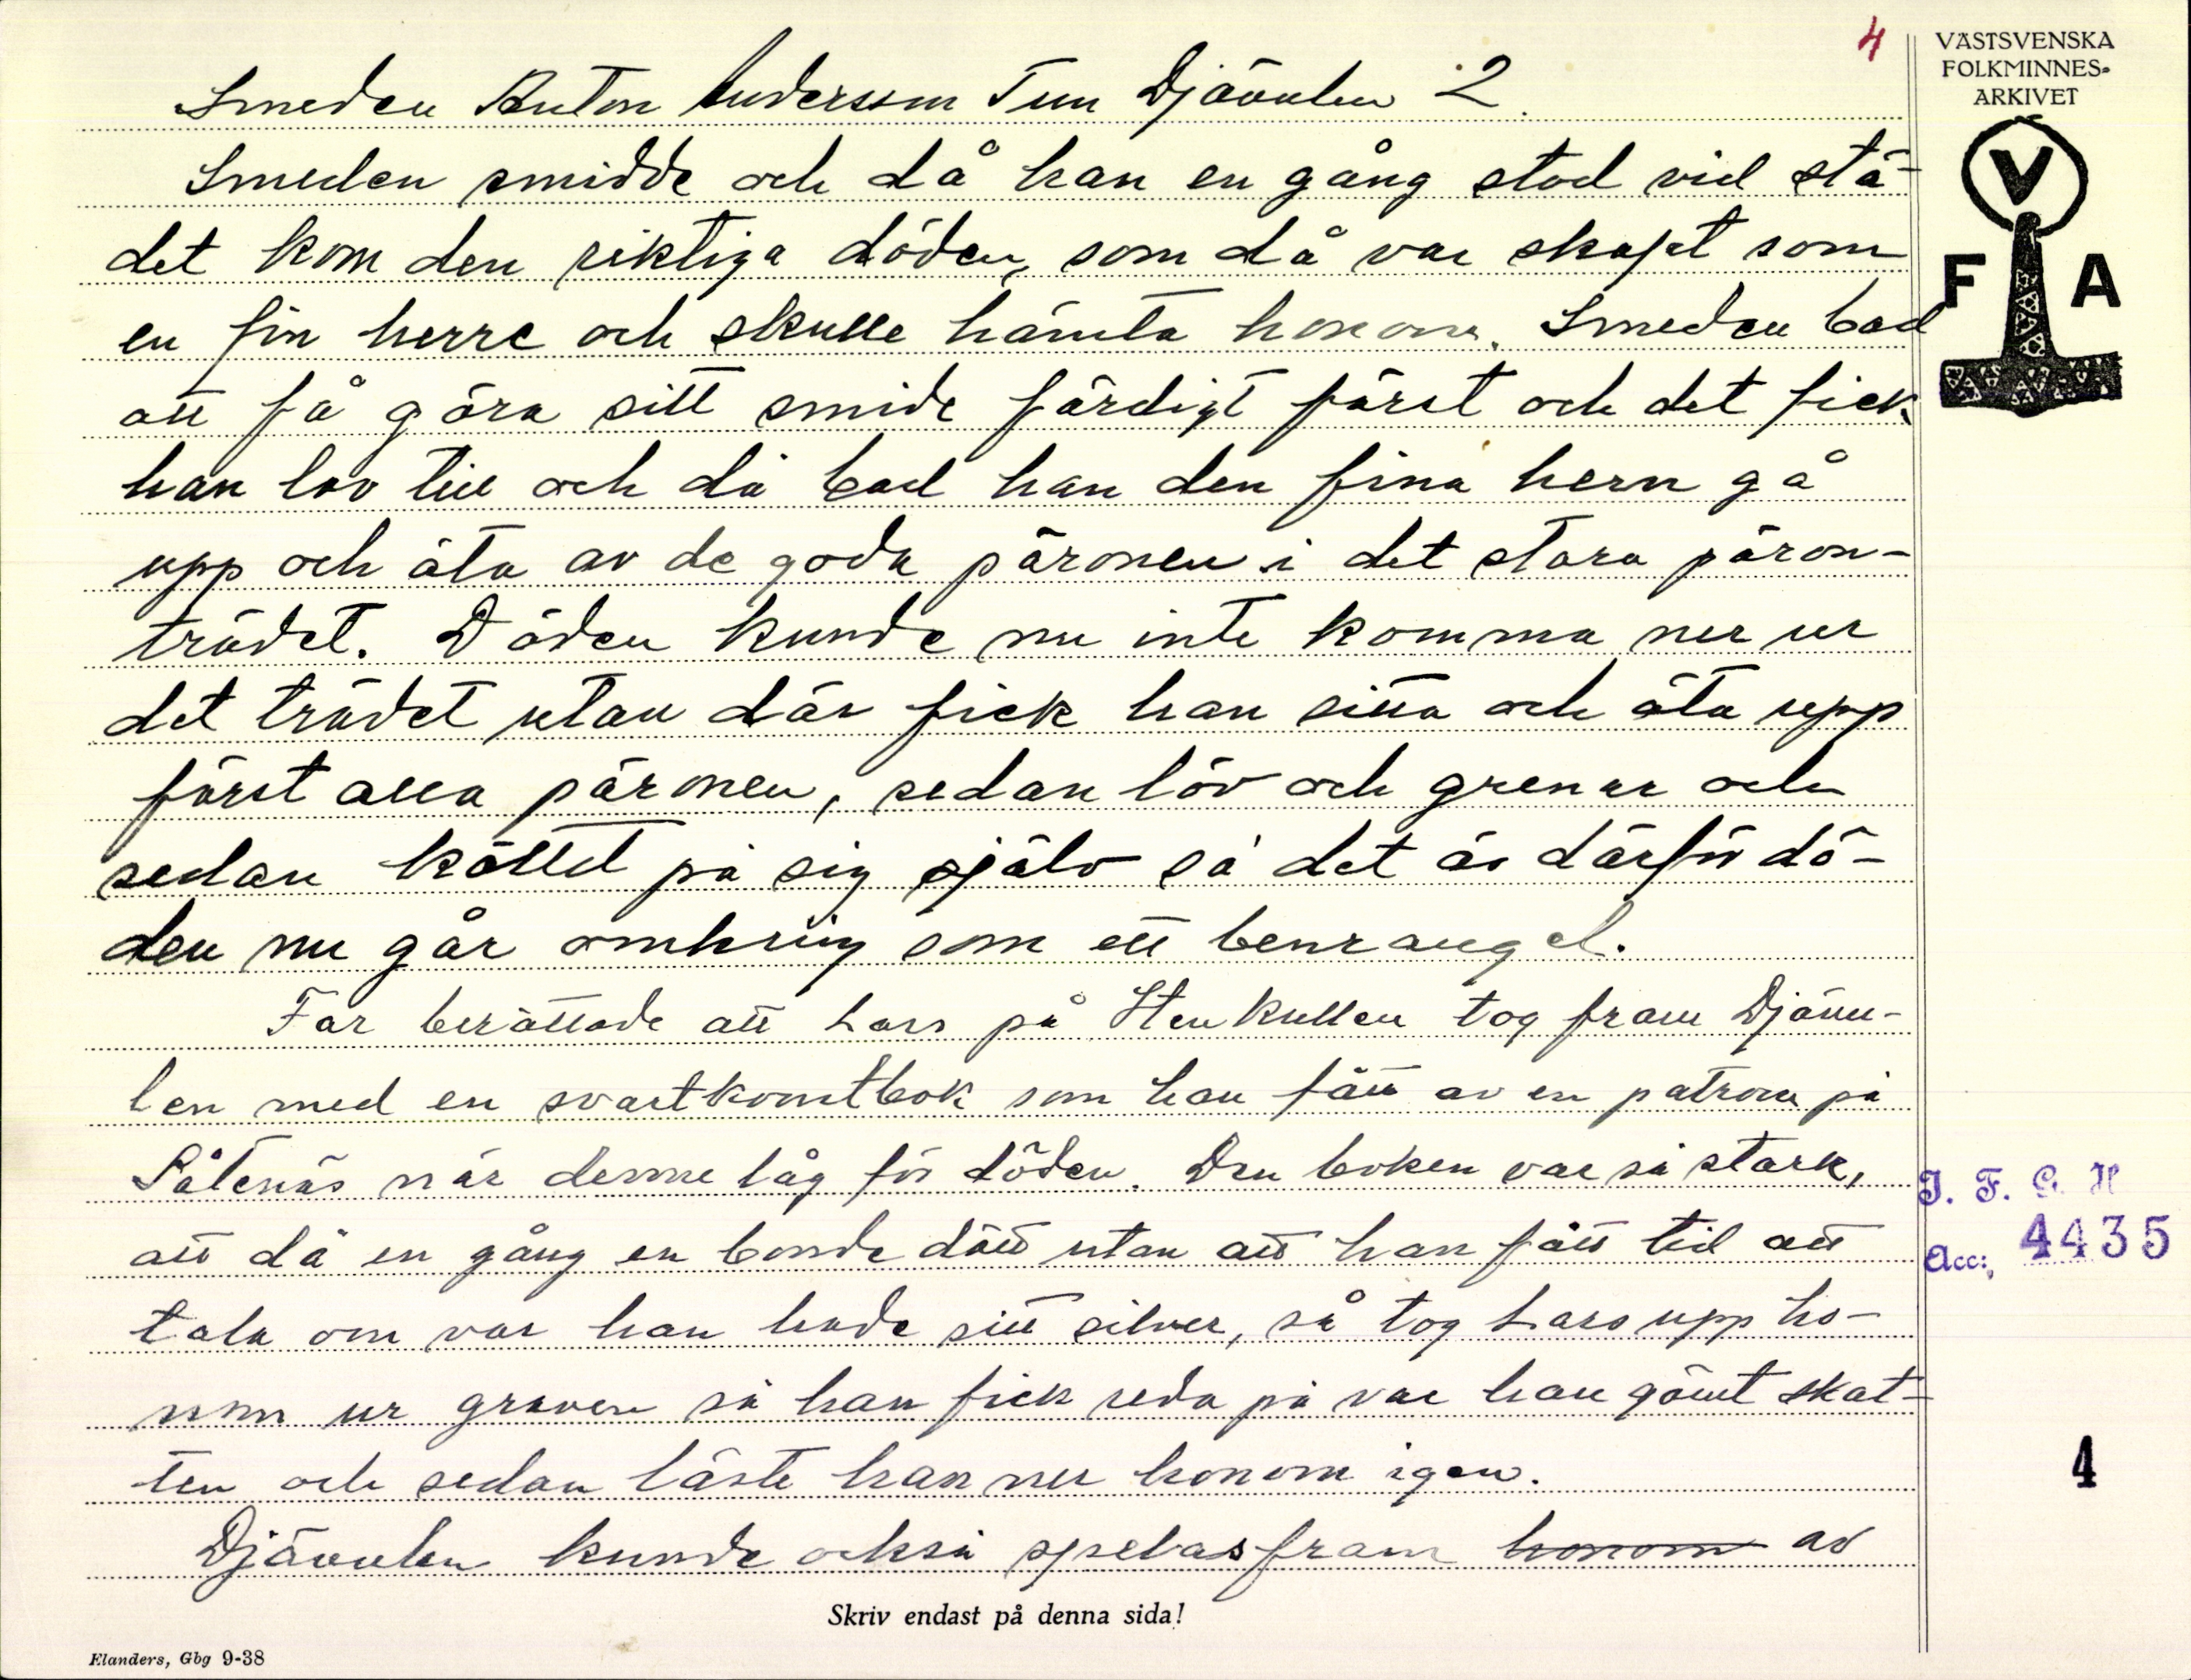 4
VÄSTSVENSKA
FOLKMINNES-
ARKIVET
V
F A
Smeden Anton Andersson Tun Djävulen 2.
Smeden smidde och då han en gång stod vid stä-
det kom den riktiga döden, som då var skapt som
en fin herre och skulle hämta honom. Smeden bad
att få göra sitt smide färdigt först och det fick
han lov till och då bad han den fina hern gå
upp och äta av de goda päronen i det stora päron-
trädet. Döden kunde nu inte komma ner ur
det trädet utan där fick han sitta och äta upp
först alla päronen, sedan löv och grenar och
sedan köttet på sig själv så det är därför dö-
den nu går omkring som ett benrangel.
Far berättade att Lars på Stenkullen tog fram Djävu-
len med en svartkonstbok som han fått av en patron på
Såtenäs när denne låg för döden. Den boken var så stark,
att då en gång en bonde dött utan att han fått tid att
tala om var han hade sitt silver, så tog Lars upp ho-
nom ur graven så han fick reda på var han gömt skat-
ten och sedan läste han ner honom igen.
Djävulen kunde också spelas fram honom av
I. F. G. H
Acc:, 4435
4
Skriv endast på denna sida!
Elanders, Gbg 9-38